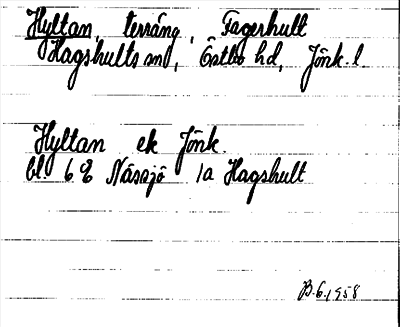 Hyltan, terräng, Fagerhult
Hagshults sn, Östbo hd, Jönk. l.
Hyltan ek Jönk.
bl. 6 E Nässjö 1a Hagshult
B.6.1958